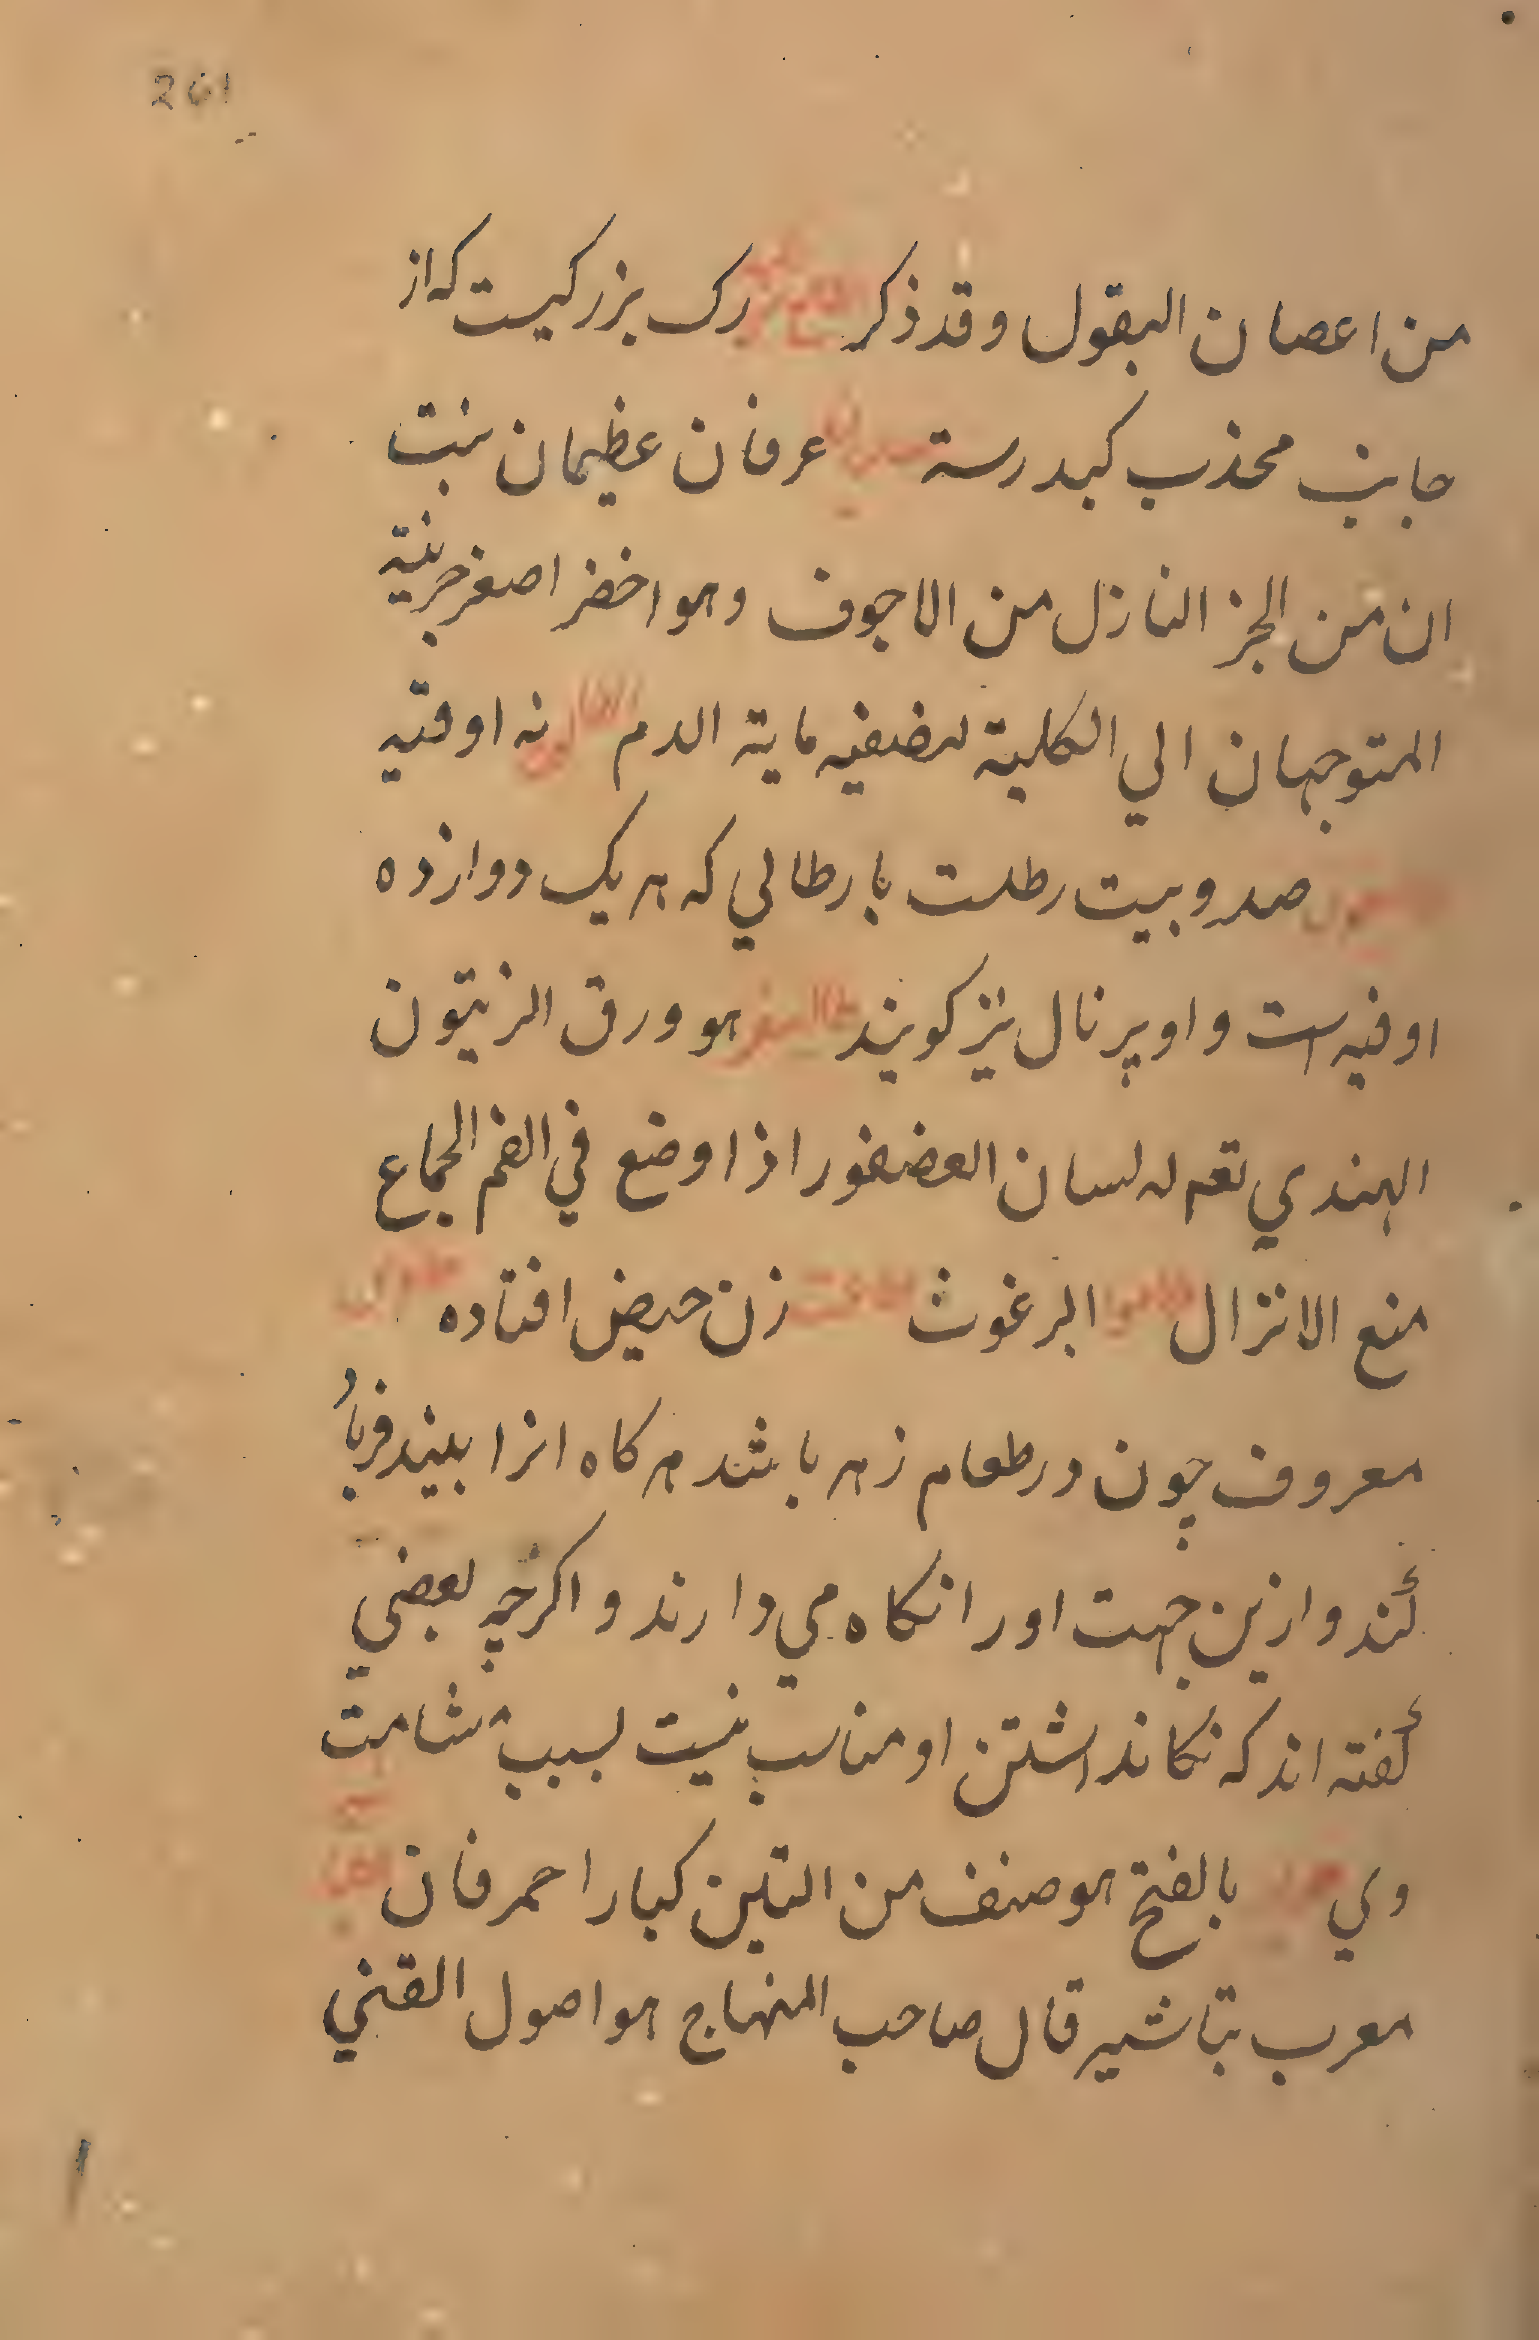 261
من اعصان البقول وقد ذكر رك بزركيست كه از
جانب محذب كبد رسته عرفان عظيمان ينبت
ان من الجز النازل من الاجوف وهو اخضر اصغر جرينية
المتوجهان الي الكلية لتصفيه ماية الدم نه اوقيه
صد و بيت رطلست بارطالي كه هر يك دوازده
اوقيه است و او پرنال نيز كويند هو ورق الزيتون
الهندي تعم له لسان العصفور اذا وضع في الفم الجماع
منع الانزال البرغوث زن حيض افتاده
معروف چون در طعام زهر باشد هر كاه انرا بيند فرياُ
كند و ازين جهت اورا نكاه مي دارند و اكرچه بعضي
كفته اند كه نكانداشتن او مناسب نيست بسبب شامت
وي بالفتح هو صنف من التين كبار احمر فان
معرب تباشير قال صاحب المنهاج هو اصول القني